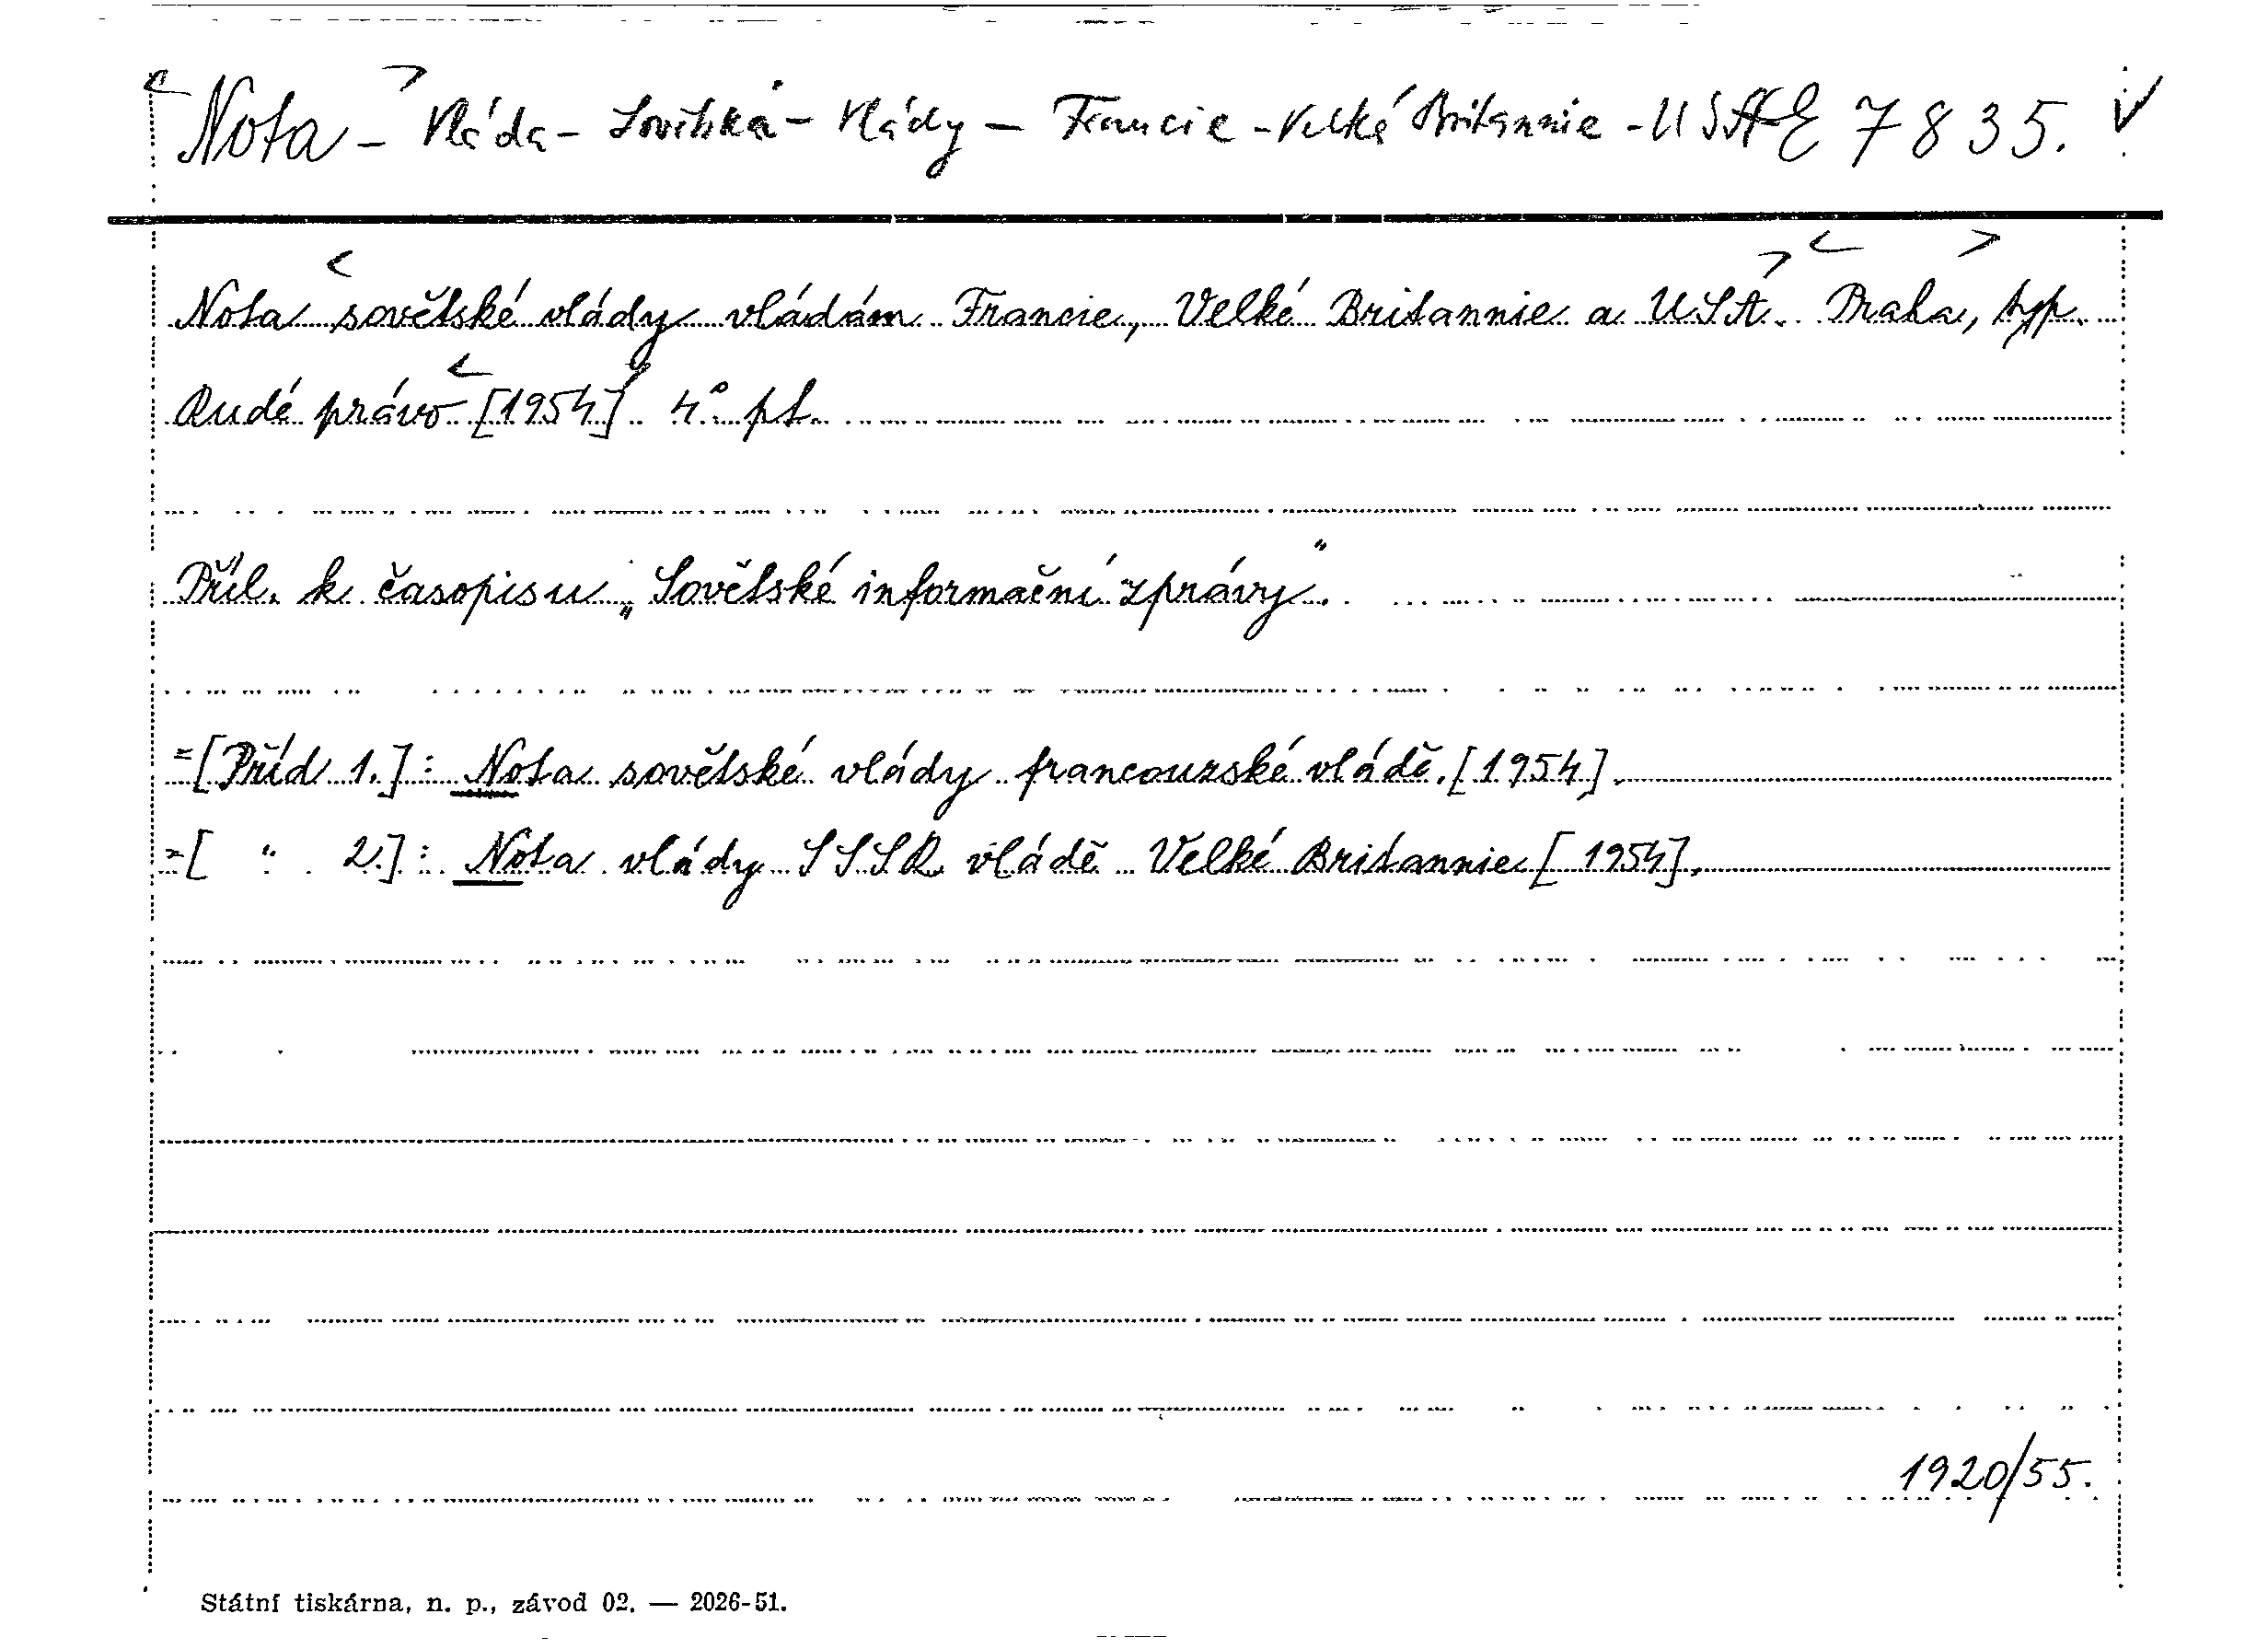 Nota - Vláda - Sovětská - Vlády - Francie - Velké Britannie - USA E 7835.
Nota sovětské vlády vládám Francie, Velké Britannie a USA. Praha, typ.
Rudé právo [1954]. 4°. pt.
Příl. k časopisu „Sovětské informační zprávy".
=[Příd 1.]: Nota sovětské vlády francouzské vládě. [1954].
=[ " 2.]: Nota vlády SSSR vládě Velké Britannie [1954].
1920/55.
Státní tiskárna, n. p., závod 02. — 2026-51.